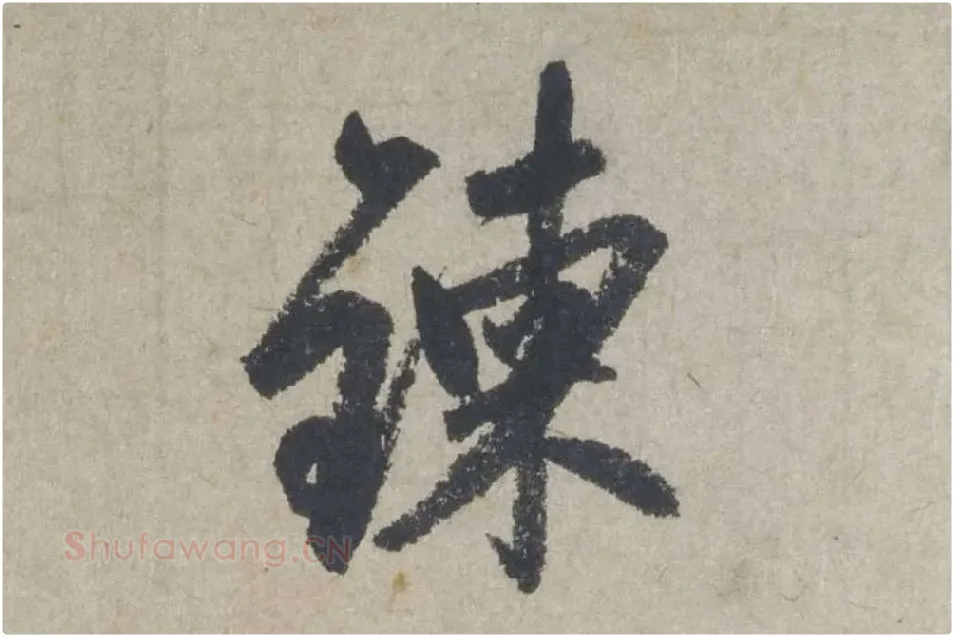 鍊
Shufawang.CN